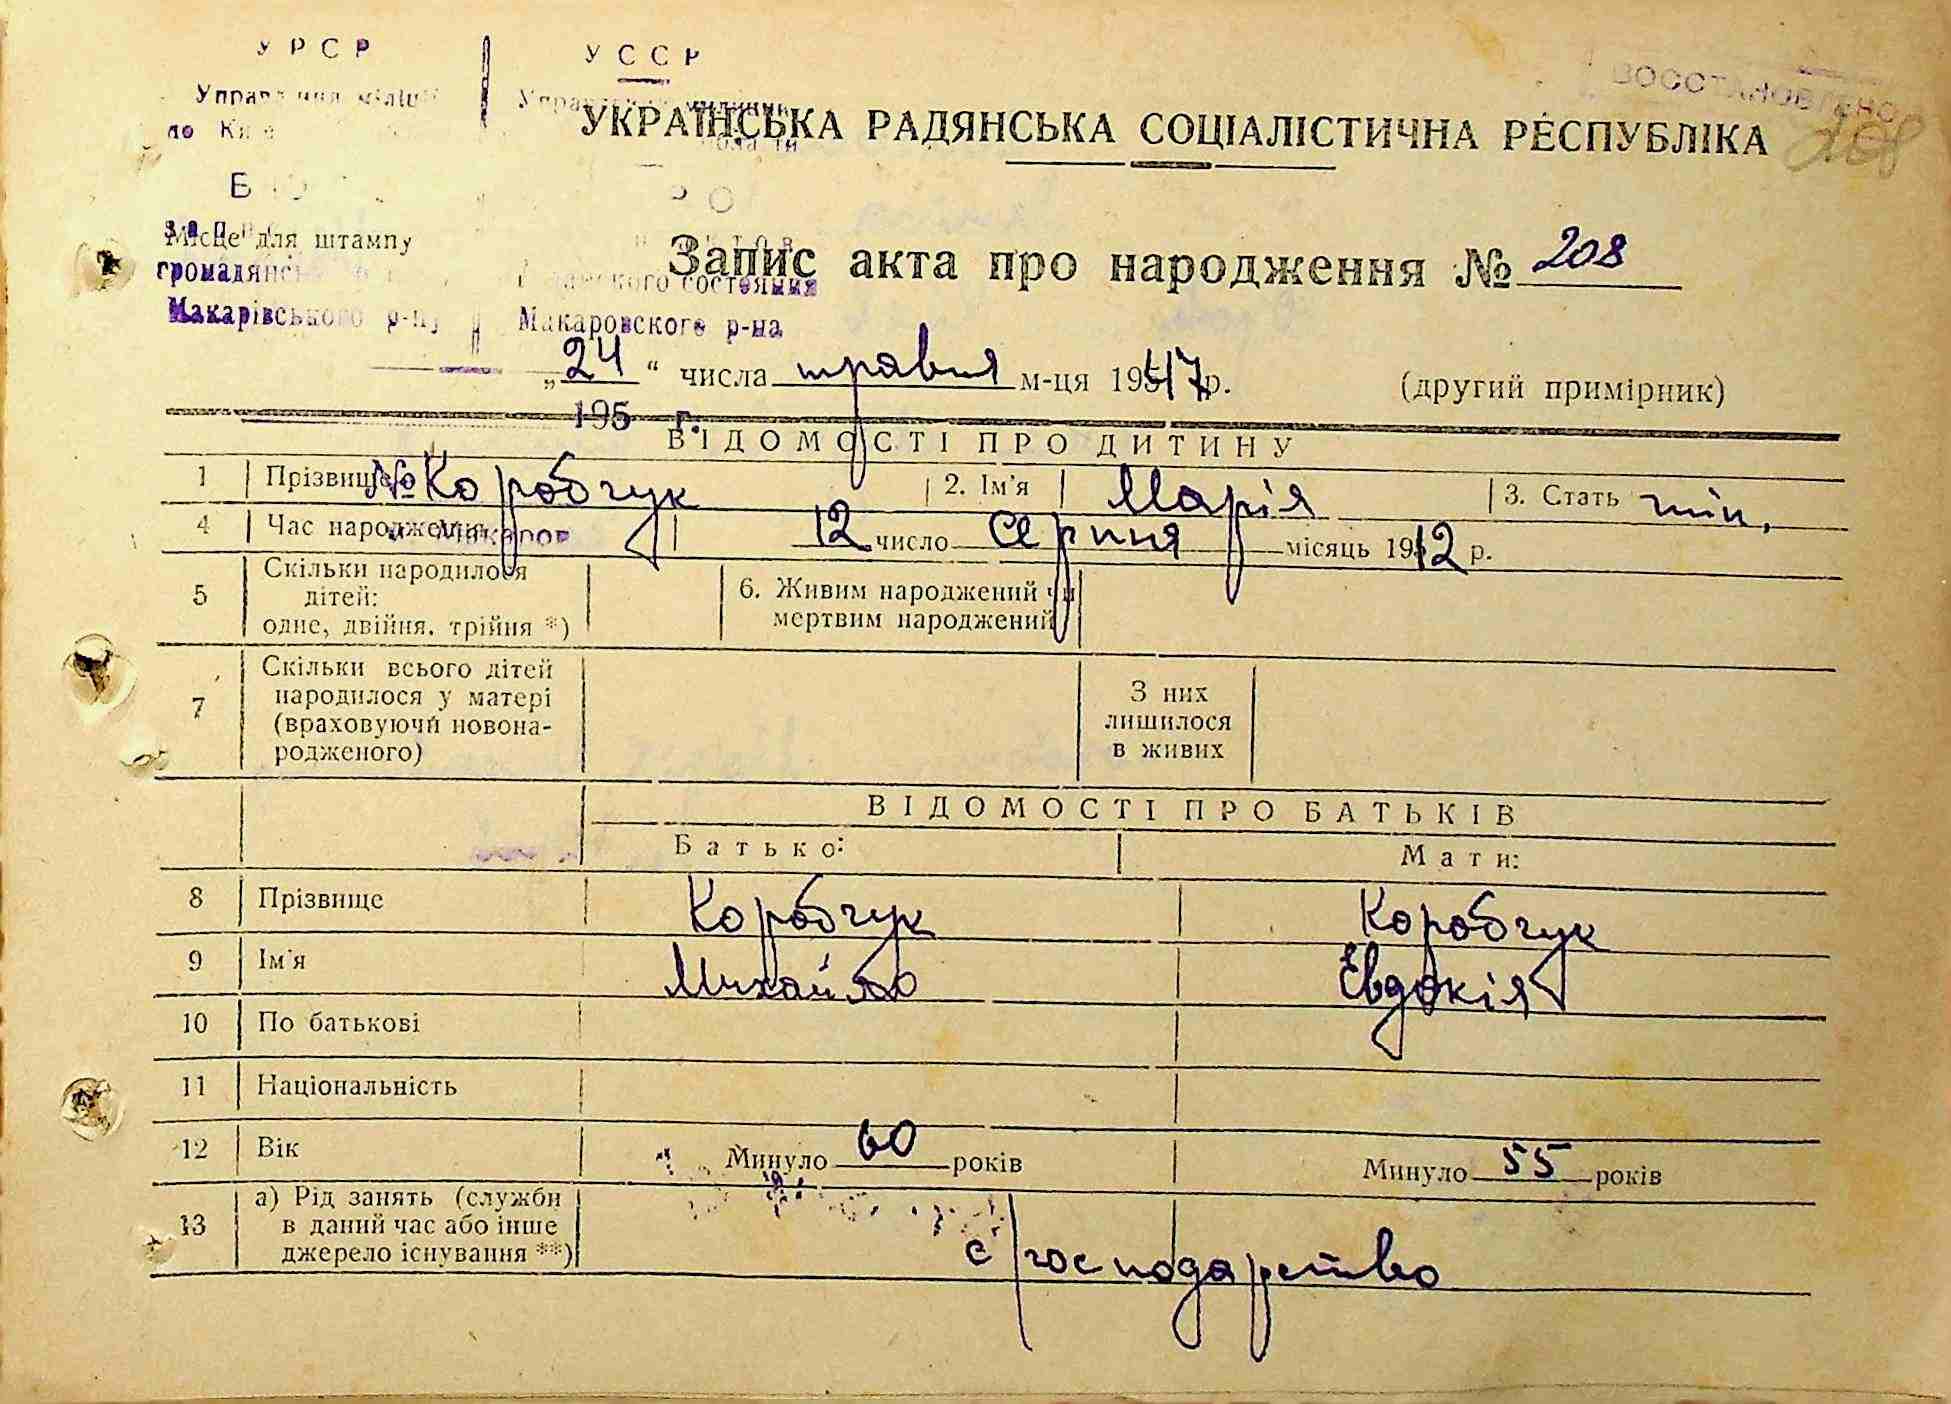 УРСР УССР
ВОССТАНОВЛЕНО
по
УКРАЇНСЬКА РАДЯНСЬКА СОЦІАЛІСТИЧНА РЕСПУБЛІКА
208
Місце для штампу
Запис акта про народження № 208
Макарівського р-ну Макаровского р-на
„24“ числа травня м-ця 1947 р. (другий примірник)
195 г.
ВІДОМОСТІ ПРО ДИТИНУ
1 Прізвище № Коробчук 2. Ім'я Марія 3. Стать жін.
4 Час народження 12 число Серпня місяць 1912 р.
м. Макаров
5 Скільки народилося дітей: одне, двійня, трійня *) 6. Живим народжений чи мертвим народжений
7 Скільки всього дітей народилося у матері (враховуючи новонародженого) З них лишилося в живих
ВІДОМОСТІ ПРО БАТЬКІВ
Батько: Мати:
8 Прізвище Коробчук Коробчук
9 Ім'я Михайло Євдокія
10 По батькові
11 Національність
12 Вік Минуло 60 років Минуло 55 років
13 а) Рід занять (служби в даний час або інше джерело існування **) с господарство